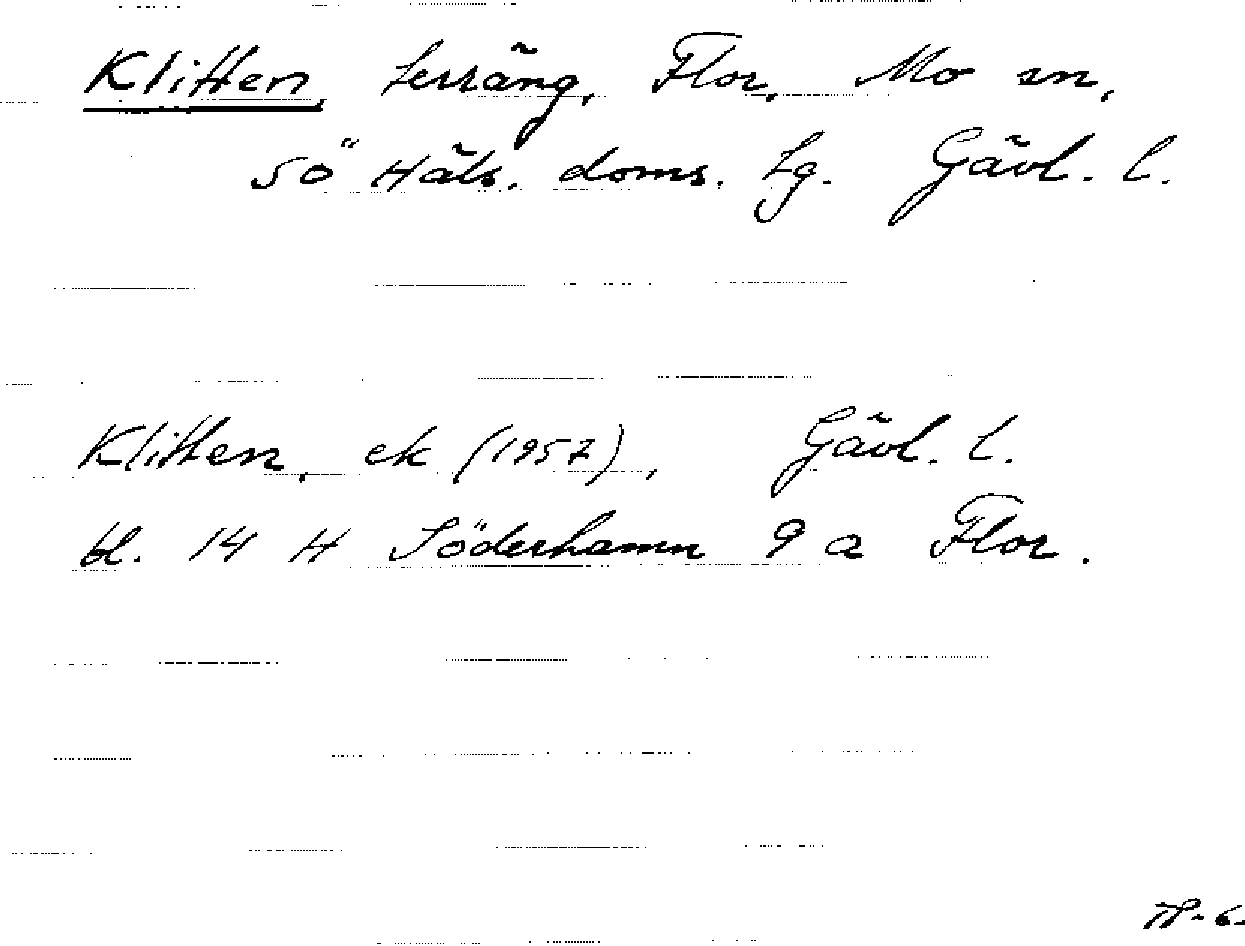 Klitten, terräng, Flor, Mo sn,
Sö Häls. doms. Lg. Gävl. l.
Klitten, ek (1957), Gävl. l.
bl. 14 H Söderhamn 9 a Flor.